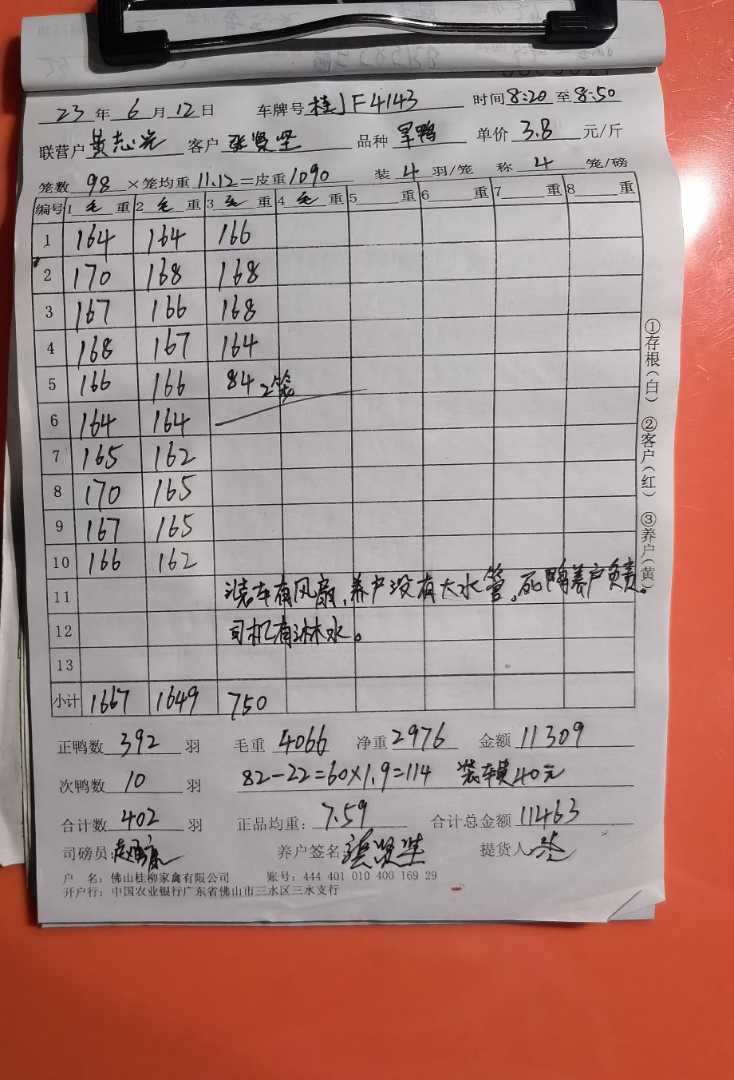 23 年 6 月 12 日 车牌号 桂JF4143 时间 8:20 至 8:50
联营户 黄志 客户 张贤坚 品种 旱鸭 单价 3.8 元/斤
笼数 98 ×笼均重 11.12 =皮重 1090 装 4 羽/笼 称 4 笼/磅
编号 1 毛 重 2 毛 重 3 毛 重 4 毛 重 5 重 6 重 7 重 8 重
1 164 164 166
2 170 168 168
3 167 166 168
4 168 167 164
5 166 166 84 2笼
6 164 164
7 165 162
8 170 165
9 167 165
10 166 162
11 装车有风扇,养户没有大水管。死鸭养户负责。
12 司机有淋水。
13
小计 1667 1649 750
正鸭数 392 羽 毛重 4066 净重 2976 金额 11309
次鸭数 10 羽 82-22=60×1.9=114 装车费40元
合计数 402 羽 正品均重: 7.59 合计总金额 11463
司磅员: 养户签名 张贤坚 提货人
户 名: 佛山桂柳家禽有限公司 账号: 444 401 010 400 169 29
开户行: 中国农业银行广东省佛山市三水区三水支行
①存根(白) ②客户(红) ③养户(黄)